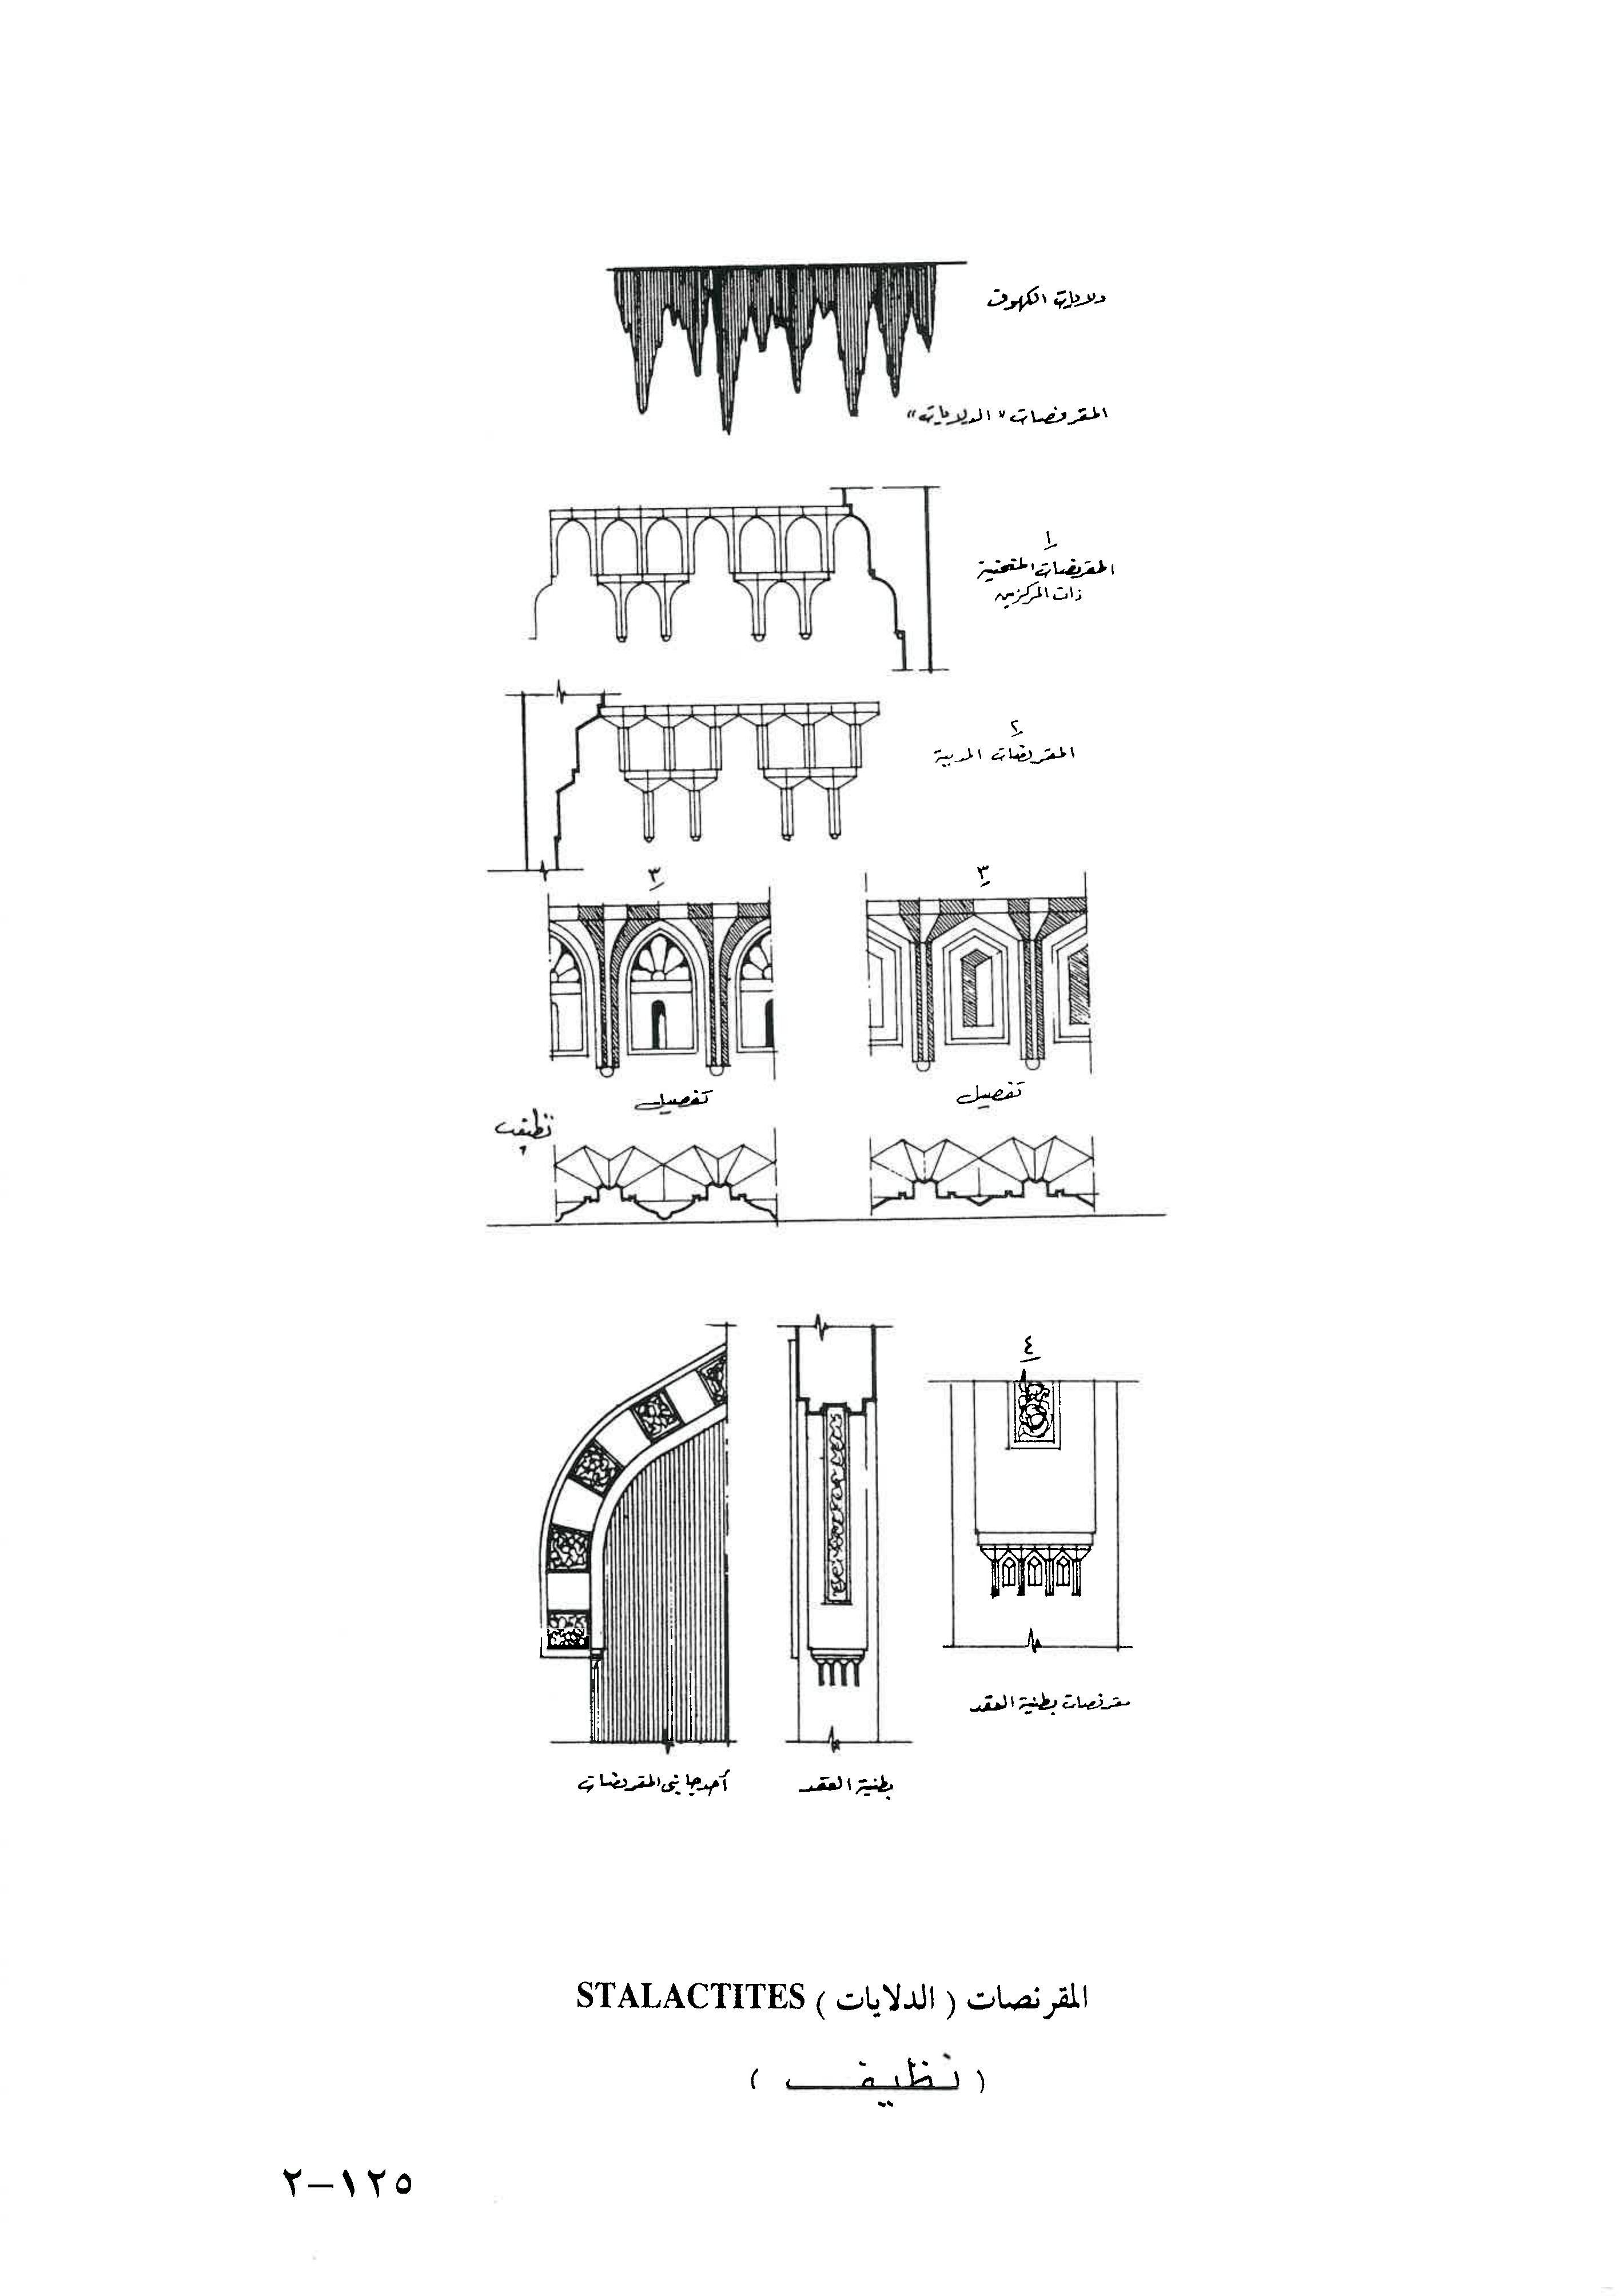 دلايات الكهوف
المقرنصات "الدلايات"
١
المقرنصات المنحنية
ذات المركزين
٢
المقرنصات المدببة
٣
٣
تفصيل
تفصيل
نظيف
٤
مقرنصات بطنية العقد
أحد جانبي المقرنصات
بطنية العقد
المقرنصات ( الدلايات ) STALACTITES
( نظيف )
٢-١٢٥